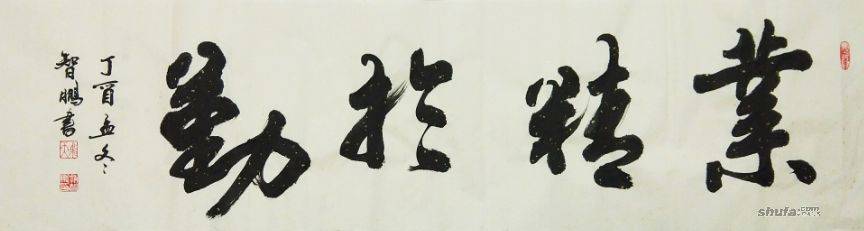 業精於勤
丁酉孟冬
智鵬書
shufa.com